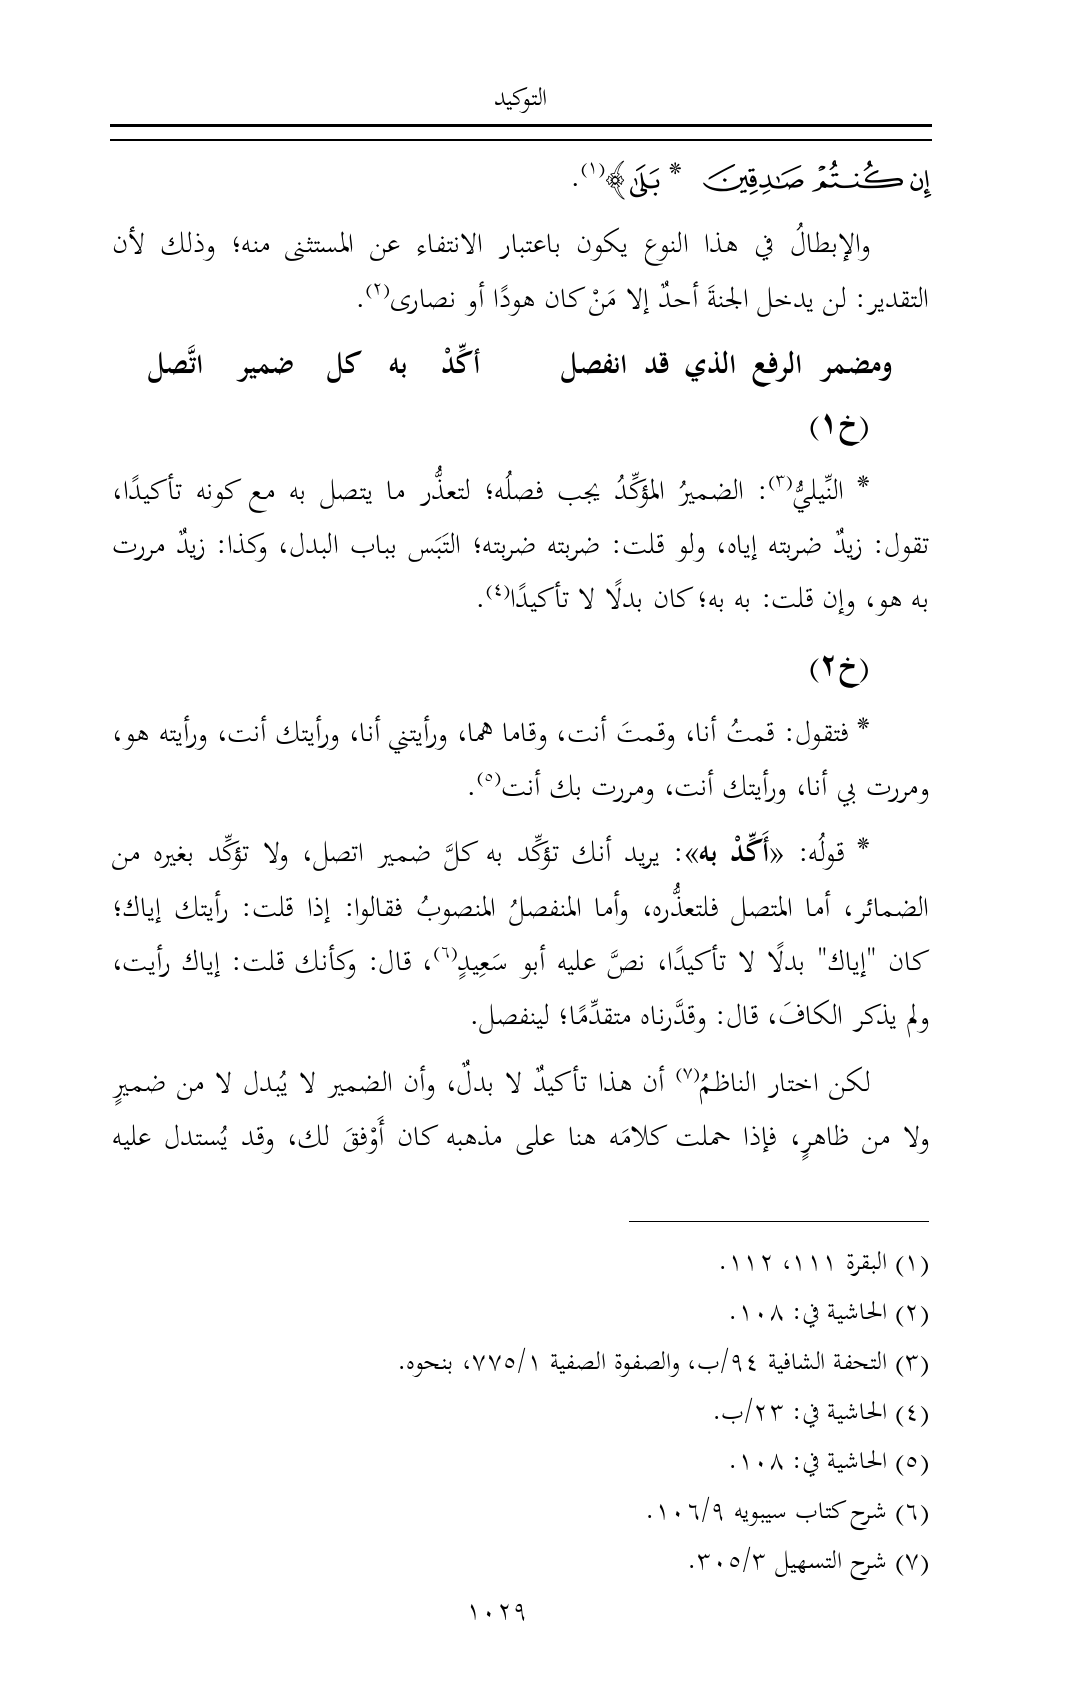 التوكيد
إِن كُنتُمْ صَٰدِقِينَ * بَلَىٰ﴾(١).
والإبطالُ في هذا النوع يكون باعتبار الانتفاء عن المستثنى منه؛ وذلك لأن
التقدير: لن يدخل الجنةَ أحدٌ إلا مَنْ كان هودًا أو نصارى(٢).
ومضمر الرفع الذي قد انفصل أكِّدْ به كل ضمير اتَّصل
(خ١)
* النِّيليُّ(٣): الضميرُ المؤكِّدُ يجب فصلُه؛ لتعذُّر ما يتصل به مع كونه تأكيدًا،
تقول: زيدٌ ضربته إياه، ولو قلت: ضربته ضربته؛ التَبَس بباب البدل، وكذا: زيدٌ مررت
به هو، وإن قلت: به به؛ كان بدلًا لا تأكيدًا(٤).
(خ٢)
* فتقول: قمتُ أنا، وقمتَ أنت، وقاما هما، ورأيتني أنا، ورأيتك أنت، ورأيته هو،
ومررت بي أنا، ورأيتك أنت، ومررت بك أنت(٥).
* قولُه: «أَكِّدْ به»: يريد أنك تؤكِّد به كلَّ ضمير اتصل، ولا تؤكِّد بغيره من
الضمائر، أما المتصل فلتعذُّره، وأما المنفصلُ المنصوبُ فقالوا: إذا قلت: رأيتك إياك؛
كان "إياك" بدلًا لا تأكيدًا، نصَّ عليه أبو سَعِيدٍ(٦)، قال: وكأنك قلت: إياك رأيت،
ولم يذكر الكافَ، قال: وقدَّرناه متقدِّمًا؛ لينفصل.
لكن اختار الناظمُ(٧) أن هذا تأكيدٌ لا بدلٌ، وأن الضمير لا يُبدل لا من ضميرٍ
ولا من ظاهرٍ، فإذا حملت كلامَه هنا على مذهبه كان أَوْفقَ لك، وقد يُستدل عليه
(١) البقرة ١١١، ١١٢.
(٢) الحاشية في: ١٠٨.
(٣) التحفة الشافية ٩٤/ب، والصفوة الصفية ٧٧٥/١، بنحوه.
(٤) الحاشية في: ٢٣/ب.
(٥) الحاشية في: ١٠٨.
(٦) شرح كتاب سيبويه ١٠٦/٩.
(٧) شرح التسهيل ٣٠٥/٣.
١٠٢٩